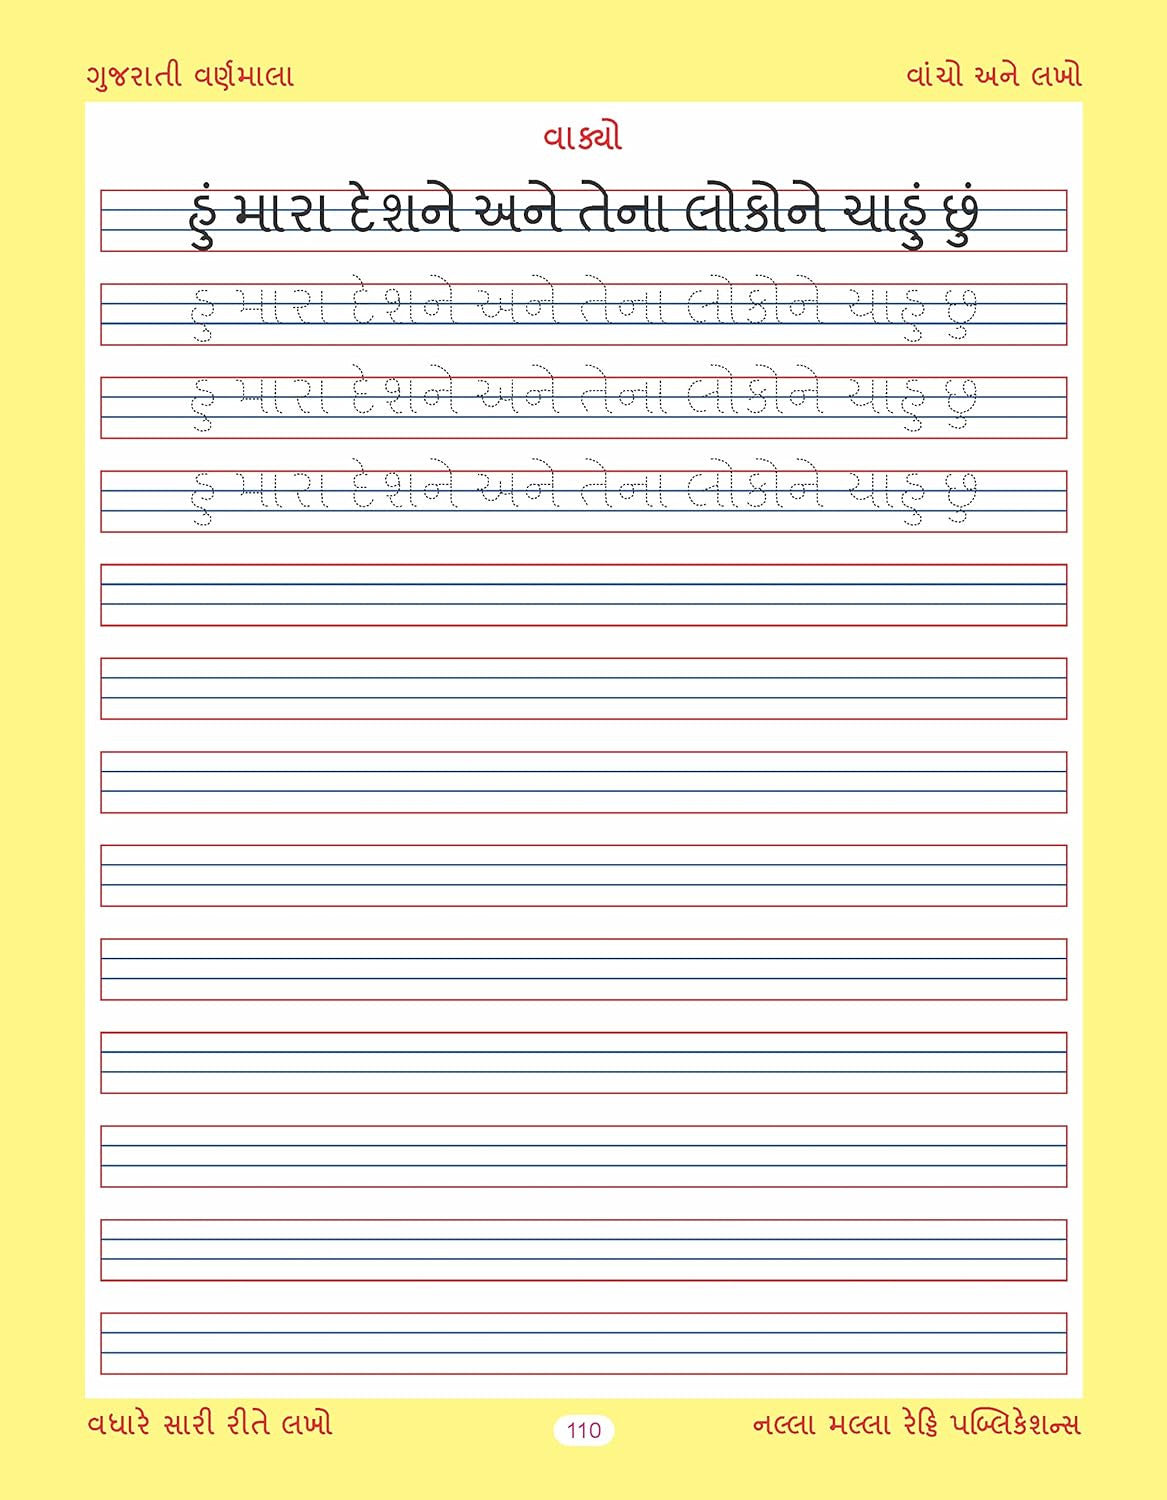 ગુજરાતી વર્ણમાલા
વાંચો અને લખો
વાક્યો
હું મારા દેશને અને તેના લોકોને ચાહું છું
હુ મારા દેશને અને તેના લોકોને ચાહુ છુ
હુ મારા દેશને અને તેના લોકોને ચાહુ છુ
હુ મારા દેશને અને તેના લોકોને ચાહુ છુ
વધારે સારી રીતે લખો
110
નલ્લા મલ્લા રેડ્ડિ પબ્લિકેશન્સ